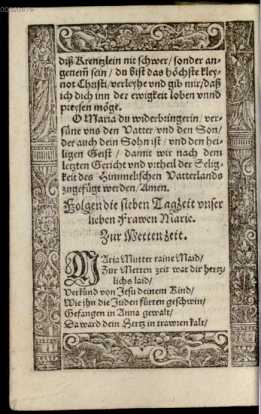 diß Krentzlein nit schwer / sonder an-
genem̃ sein / du bist das höchste kley-
not Christi / verleyhe vnd gib mir / daß
ich dich inn der ewigkeit loben vnnd
preysen möge.
O Maria du widerbringerin / ver-
süne vns den Vatter / vnd den Son /
der auch dein Sohn ist / vnd den hei-
ligen Geist / damit wir nach dem
letzten Gericht vnd vrtheil der Selig-
keit des Himmelischen Vatterlands
zugefügt werden / Amen.
Folgen die siben Tagzeit vnser
lieben Frawen Marie.
Zur Mettenzeit.
MAria Mutter raine Maid /
Zur Metten zeit war dir hertz-
lichs laid /
Verkünd von Jesu deinem Kind /
Wie ihn die Juden fürten geschwin /
Gefangen in Anna gewalt /
Da ward dein Hertz in trawren kalt /